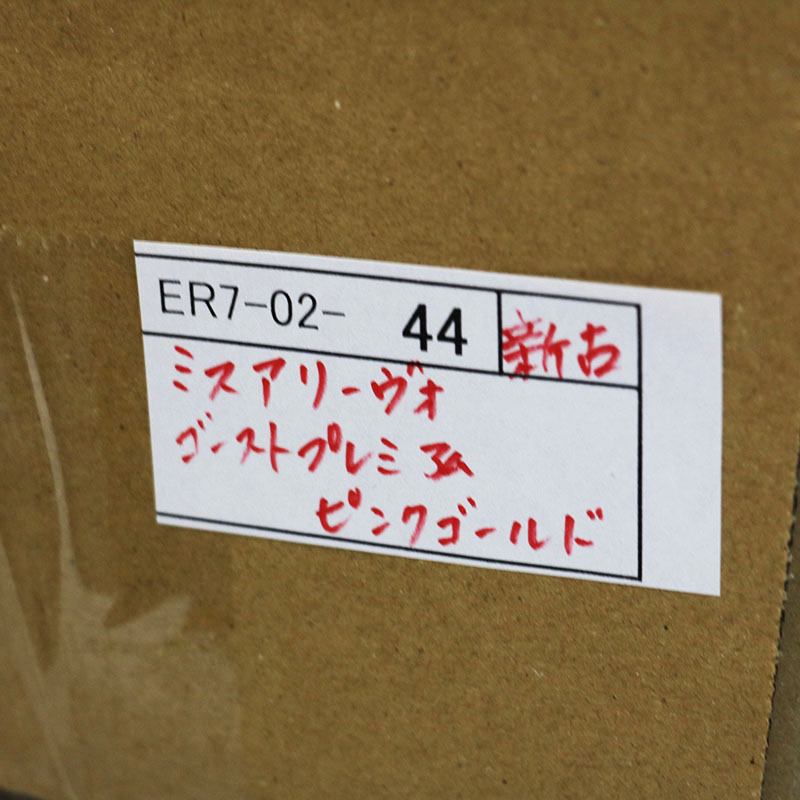 ER7-02- 44 新古
ミスアリーヴォ
ゴーストプレミアム
ピンクゴールド